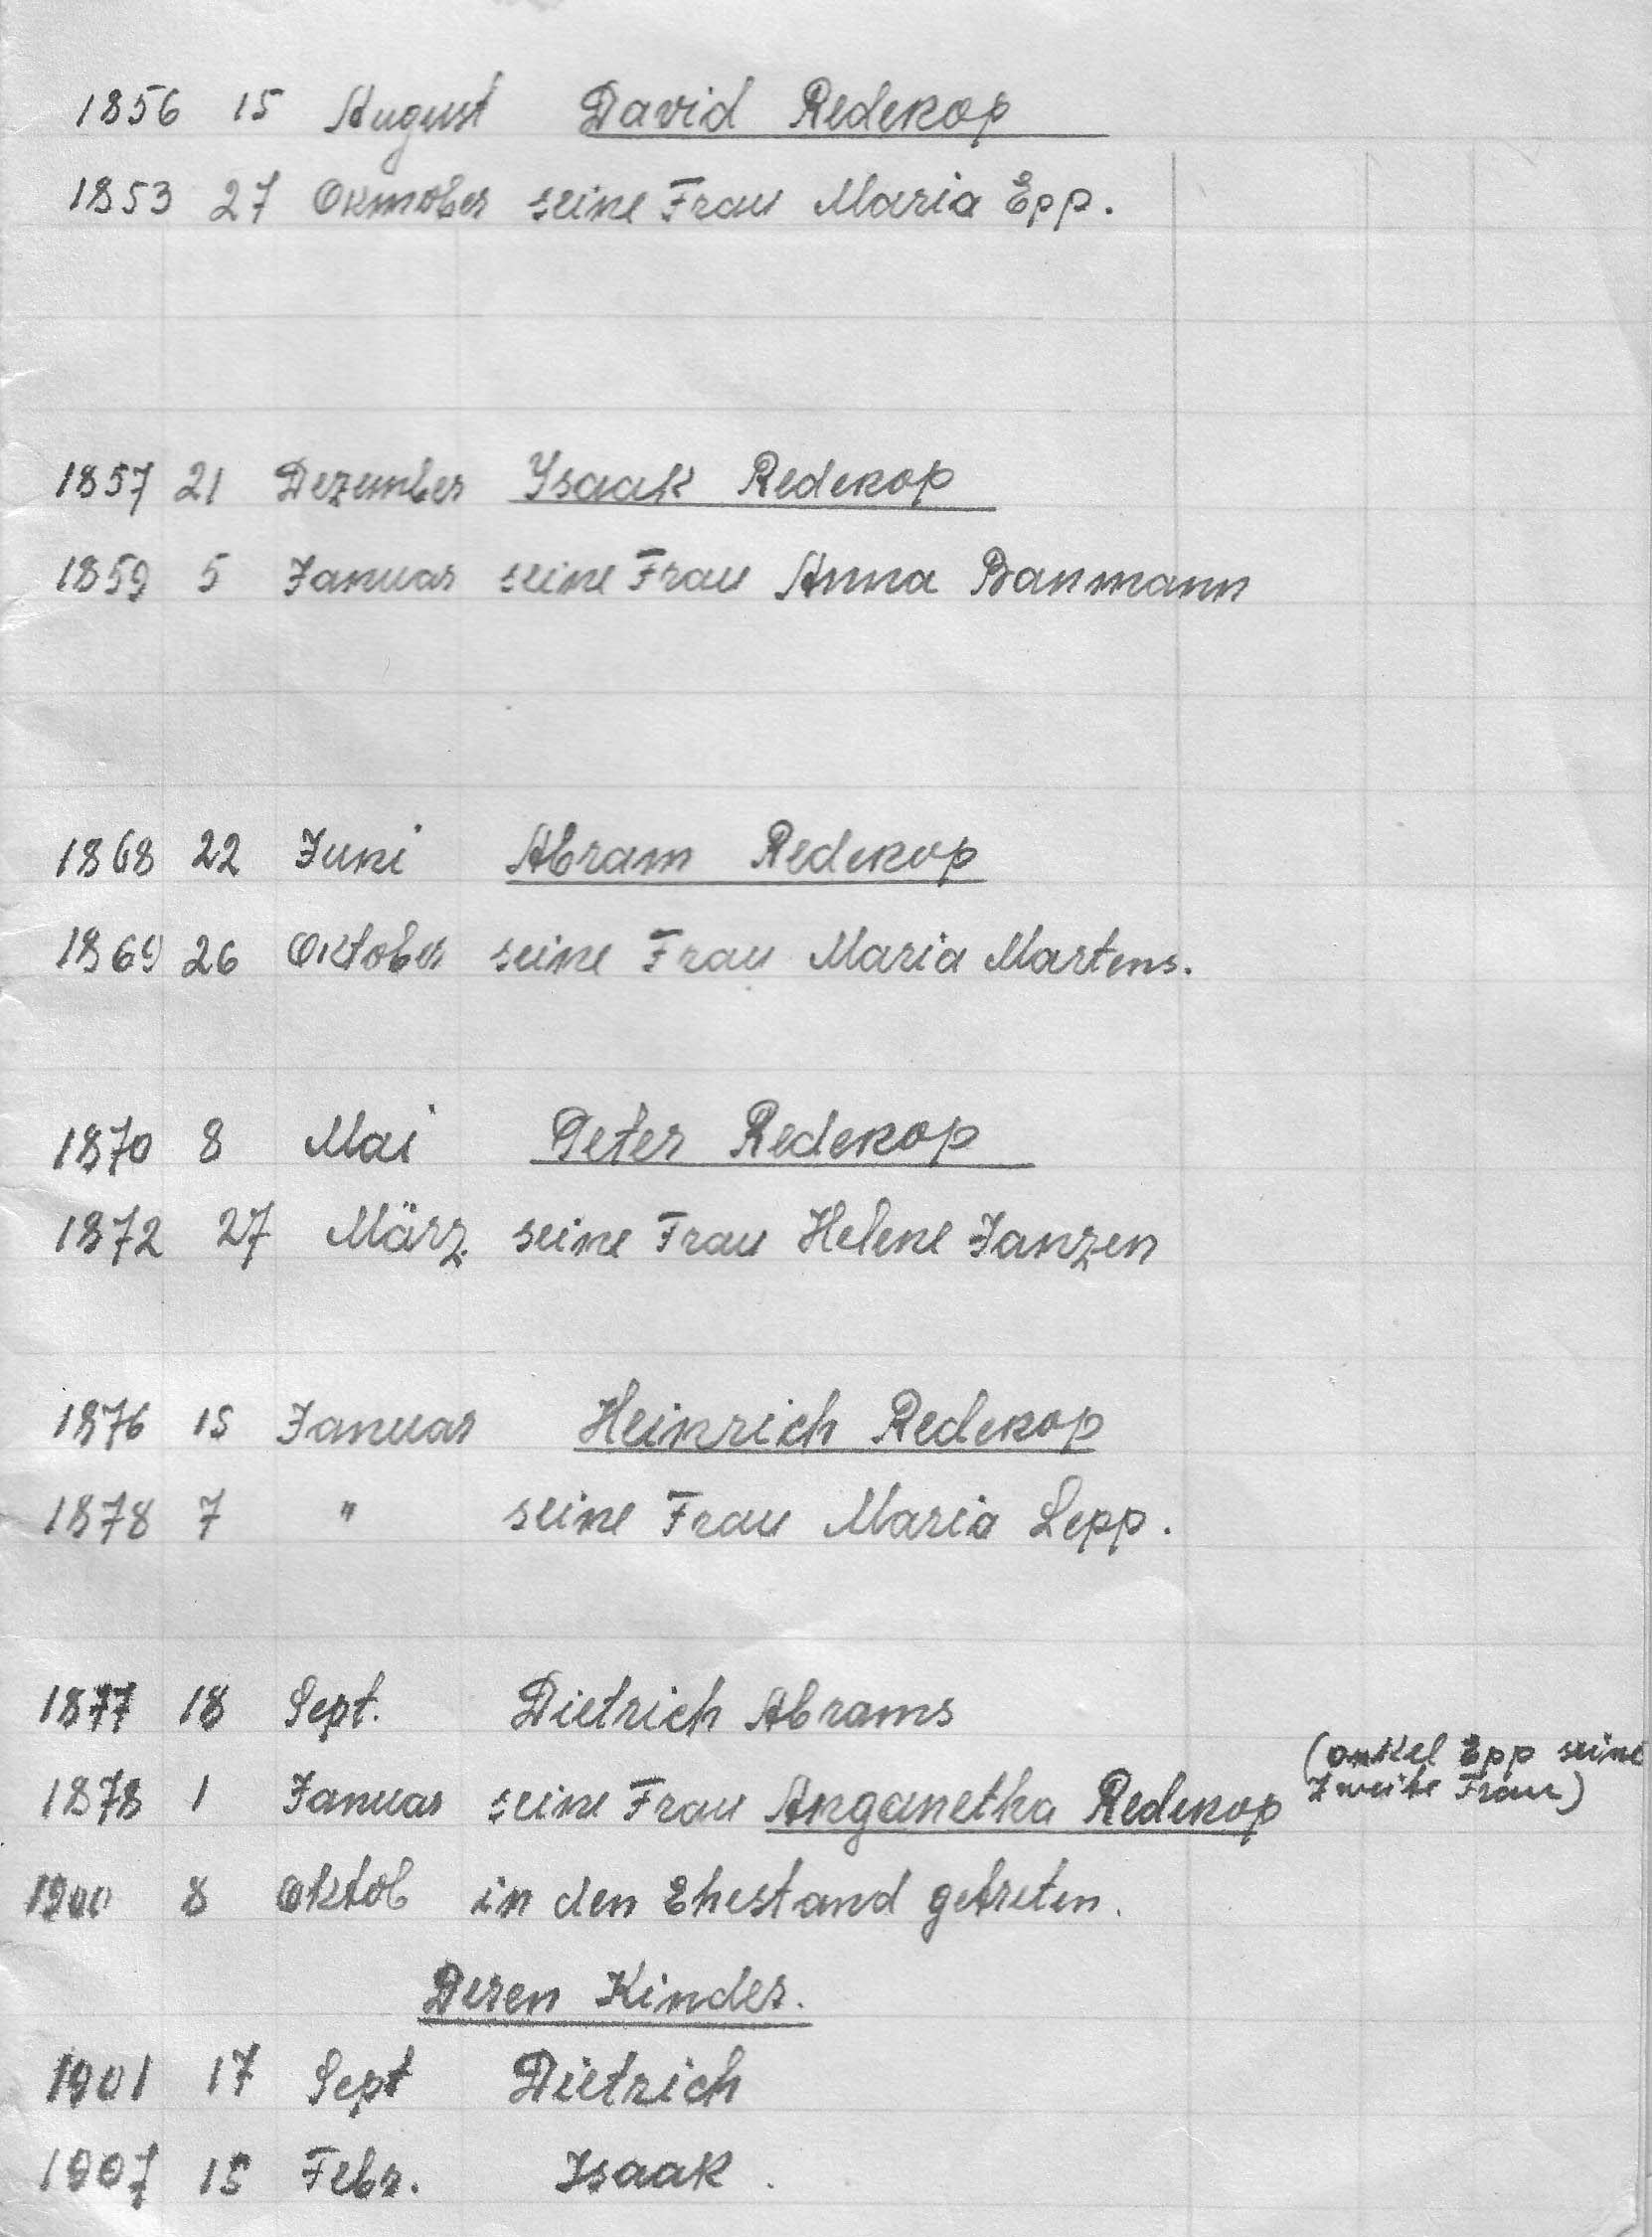 1856 15 August David Redekop
1853 27 Oktober seine Frau Maria Epp.
1857 21 Dezember Ysaak Redekop
1859 5 Januar seine Frau Anna Banmann
1868 22 Juni Abram Redekop
1869 26 Oktober seine Frau Maria Martens.
1870 8 Mai Peter Redekop
1872 27 März seine Frau Helene Janzen
1876 15 Januar Heinrich Redekop
1878 7 " seine Frau Maria Lepp.
1877 18 Sept. Dietrich Abrams
(onkel Epp seine
zweite Frau)
1878 1 Januar seine Frau Anganetha Redekop
1900 8 Oktob in den Ehestand getreten.
Deren Kinder.
1901 17 Sept Dietrich
1907 15 Febr. Isaak.